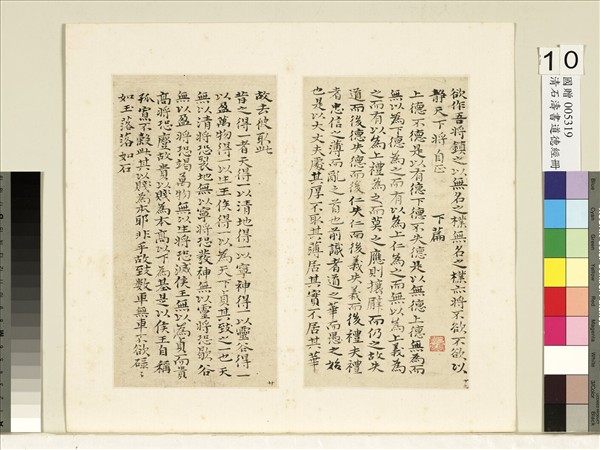 欲作吾將鎮之以無名之樸無名之樸亦將不欲不欲以
靜天下將自正
下篇
上德不德是以有德下德不失德是以無德上德無為而
無以為下德為之而有以為上仁為之而無以為上義為
之而有以為上禮為之而莫之應則攘臂而仍之故失
道而後德失德而後仁失仁而後義失義而後禮夫禮
者忠信之薄而亂之首也前識者道之華而愚之始
也是以大丈夫處其厚不取其薄居其實不居其華
故去彼取此
昔之得一者天得一以清地得一以寧神得一以靈谷得一
以盈萬物得一以生王侯得一以為天下貞其致之一也天
無以清將恐裂地無以寧將恐發神無以靈將恐歇谷
無以盈將恐竭萬物無以生將恐滅侯王無以為貞而貴
高將恐蹷故貴以賤為本高以下為基是以侯王自稱
孤寡不穀此其以賤為本耶非乎故致數車無車不欲碌〻
如玉落落如石
10
國贈 005319
清石濤書道德經冊
Blue
Cyan
Green
Yellow
Red
Magenta
White
3/Color
Black